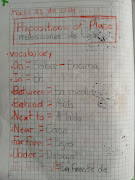 Prepositions of Place
Preposiciones de lugar
Vocabulary
On = Sobre - Encima
In = En
Between = En medio
Behind = Atrás
Next to = Al lado
Near = Cerca
Far from = Lejos
Under = Debajo